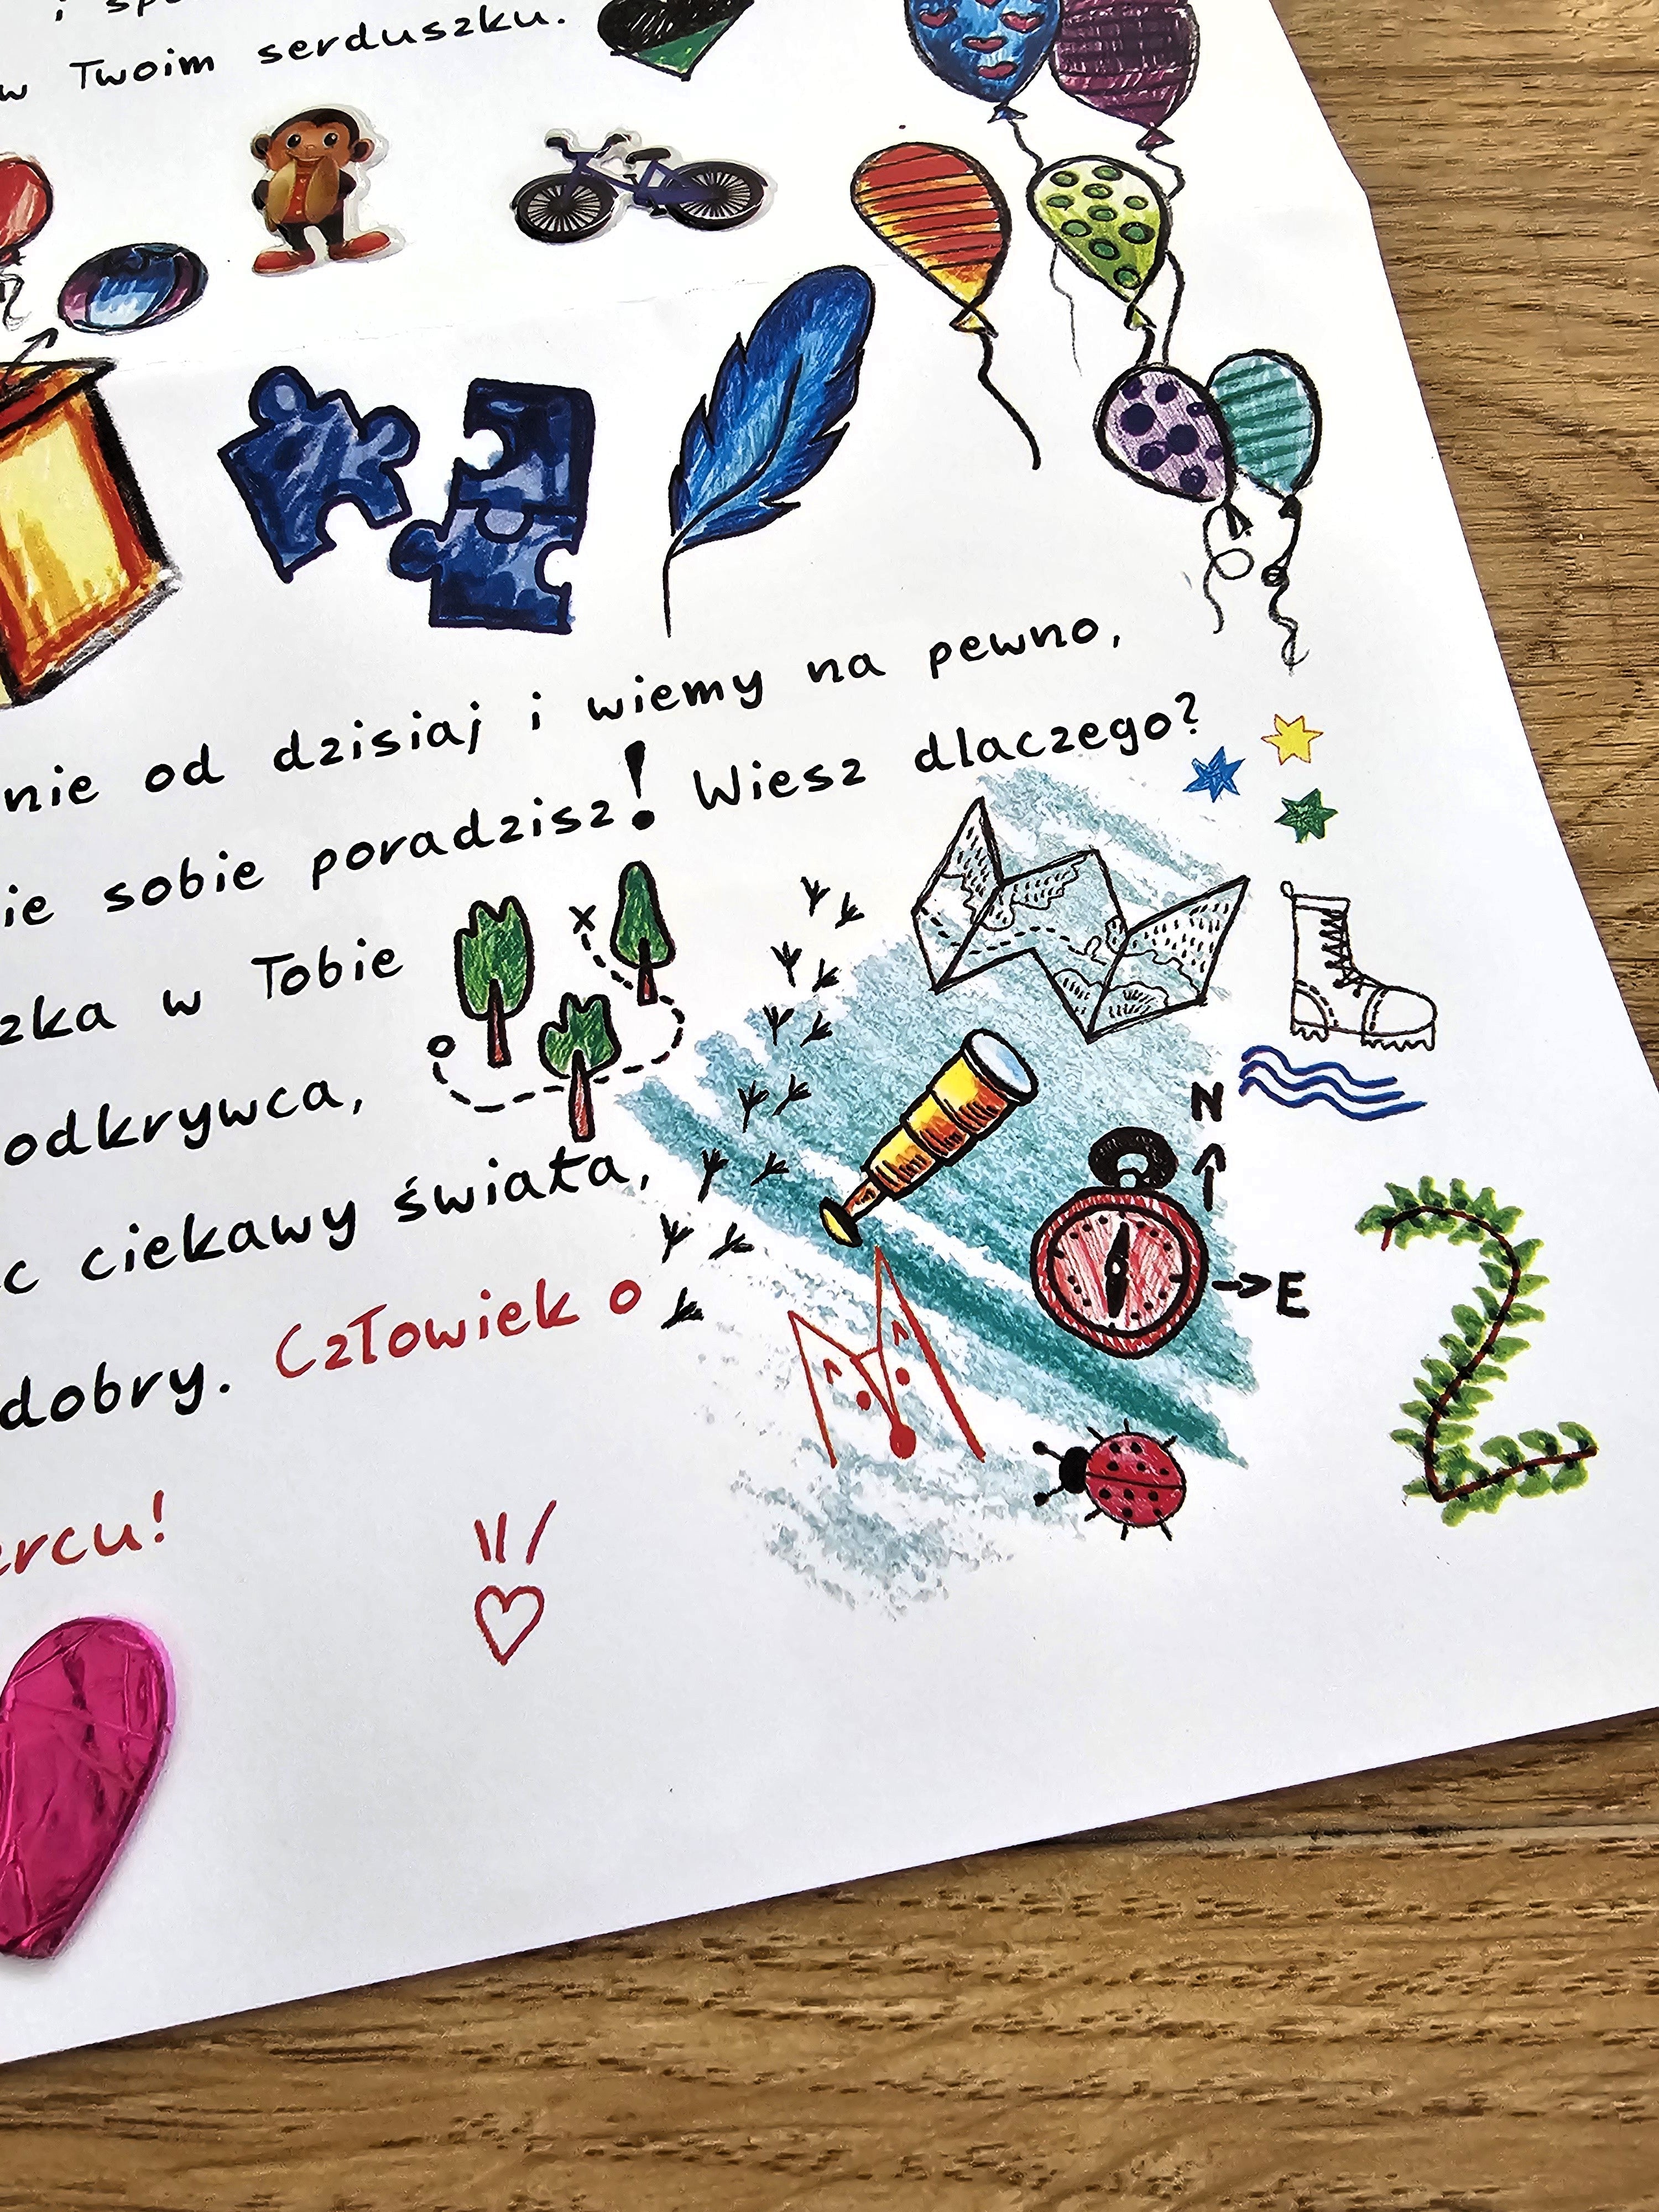 w Twoim serduszku.
nie od dzisiaj i wiemy na pewno,
ie sobie poradzisz! Wiesz dlaczego?
zka w Tobie
odkrywca,
c ciekawy świata,
dobry. Człowiek o
ercu!
N
E